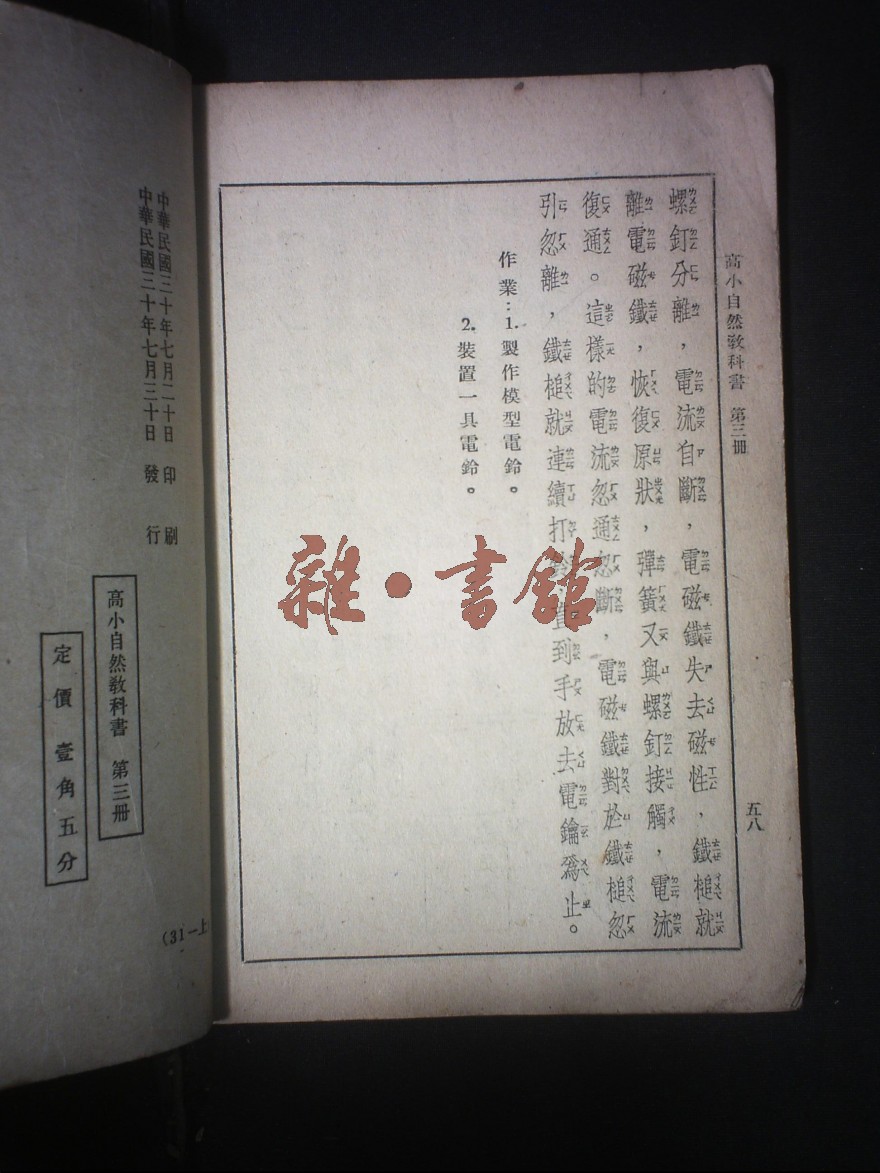 高小自然敎科書 第三冊
五八
螺釘分離，電流自斷，電磁鐵失去磁性，鐵槌就
離電磁鐵，恢復原狀，彈簧又與螺釘接觸，電流
復通。這樣的電流忽通忽斷，電磁鐵對於鐵槌忽
引忽離，鐵槌就連續打鈴，直到手放去電鑰爲止。
作業：1. 製作模型電鈴。
2. 裝置一具電鈴。
雜·書館
中華民國三十年七月二十日 印刷
中華民國三十年七月三十日 發行
高小自然敎科書 第三冊
定價壹角五分
(31—上